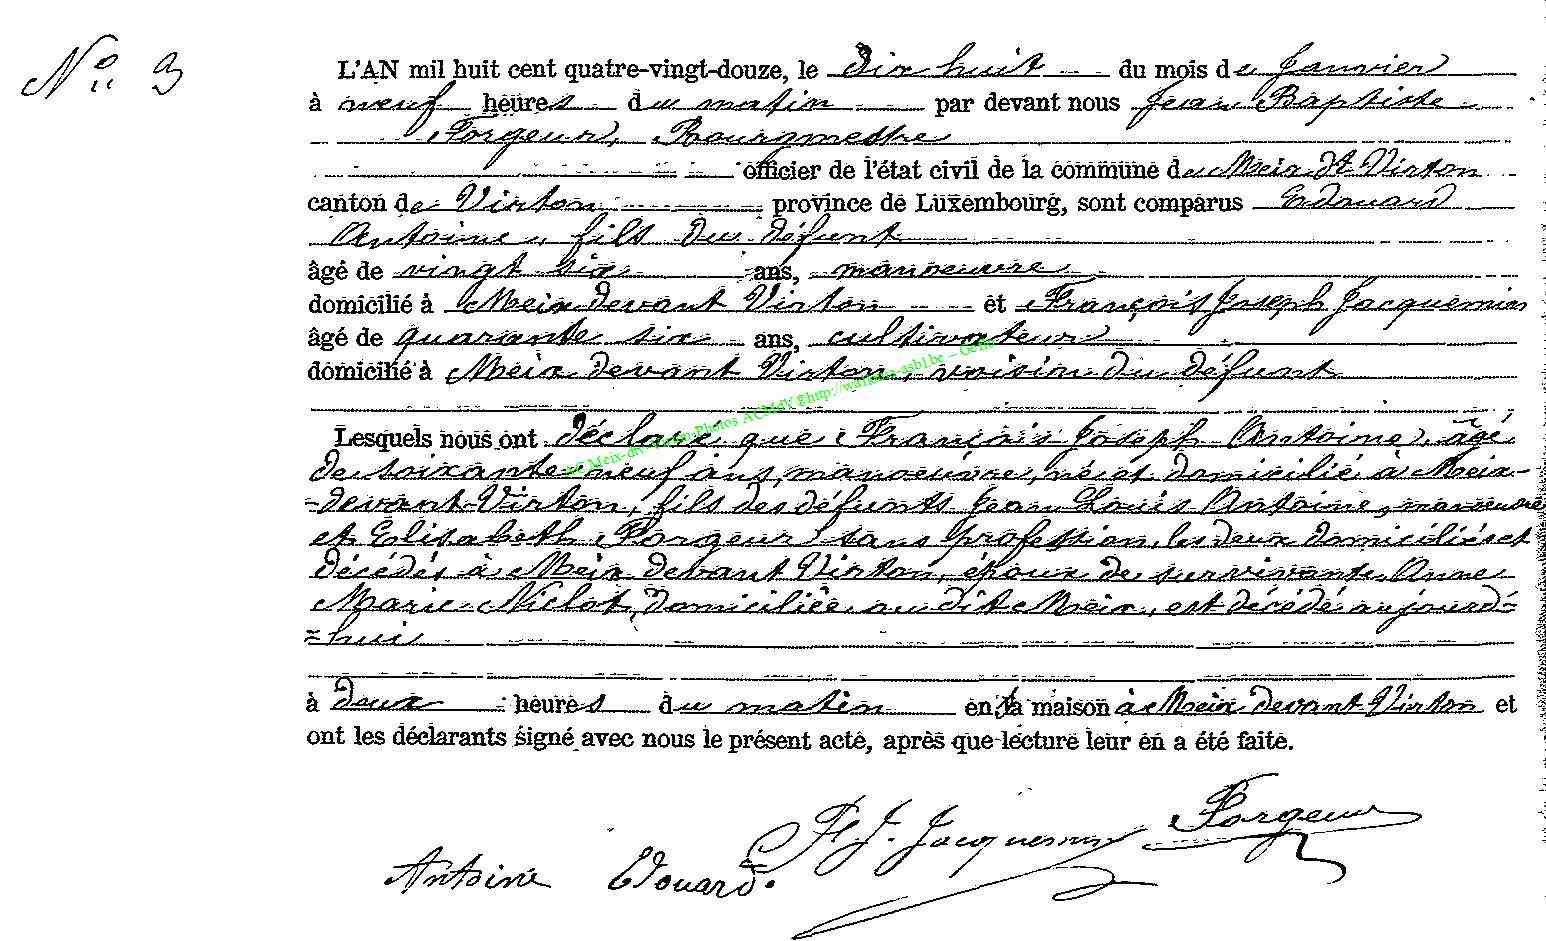 N° 3
L'AN mil huit cent quatre-vingt-douze, le dix huit du mois de Janvier
à neuf heures du matin par devant nous Jean Baptiste
Forgeur, Bourgmestre
officier de l'état civil de la commune de Meix dt Virton
canton de Virton province de Luxembourg, sont comparus Edouard
Antoine, fils du défunt
âgé de vingt six ans, manoeuvre
domicilié à Meix devant Virton et François Joseph Jacquemin
âgé de quarante six ans, cultivateur
domicilié à Meix devant Virton, voisin du défunt
Lesquels nous ont déclaré que François Joseph Antoine, âgé
de soixante neuf ans, manoeuvre, né et domicilié à Meix-
-devant-Virton, fils des défunts Jean Louis Antoine, manoeuvre
et Elisabeth Forgeur sans profession, les deux domiciliés et
décédés à Meix devant Virton, époux de survivante Anne
Marie Niclot, domiciliée au dit Meix, est décédé aujourd=
=hui
à deux heures du matin en sa maison à Meix devant Virton et
ont les déclarants signé avec nous le présent acte, après que lecture leur en a été faite.
Antoine Edouard. F. J. Jacquemin Forgeur